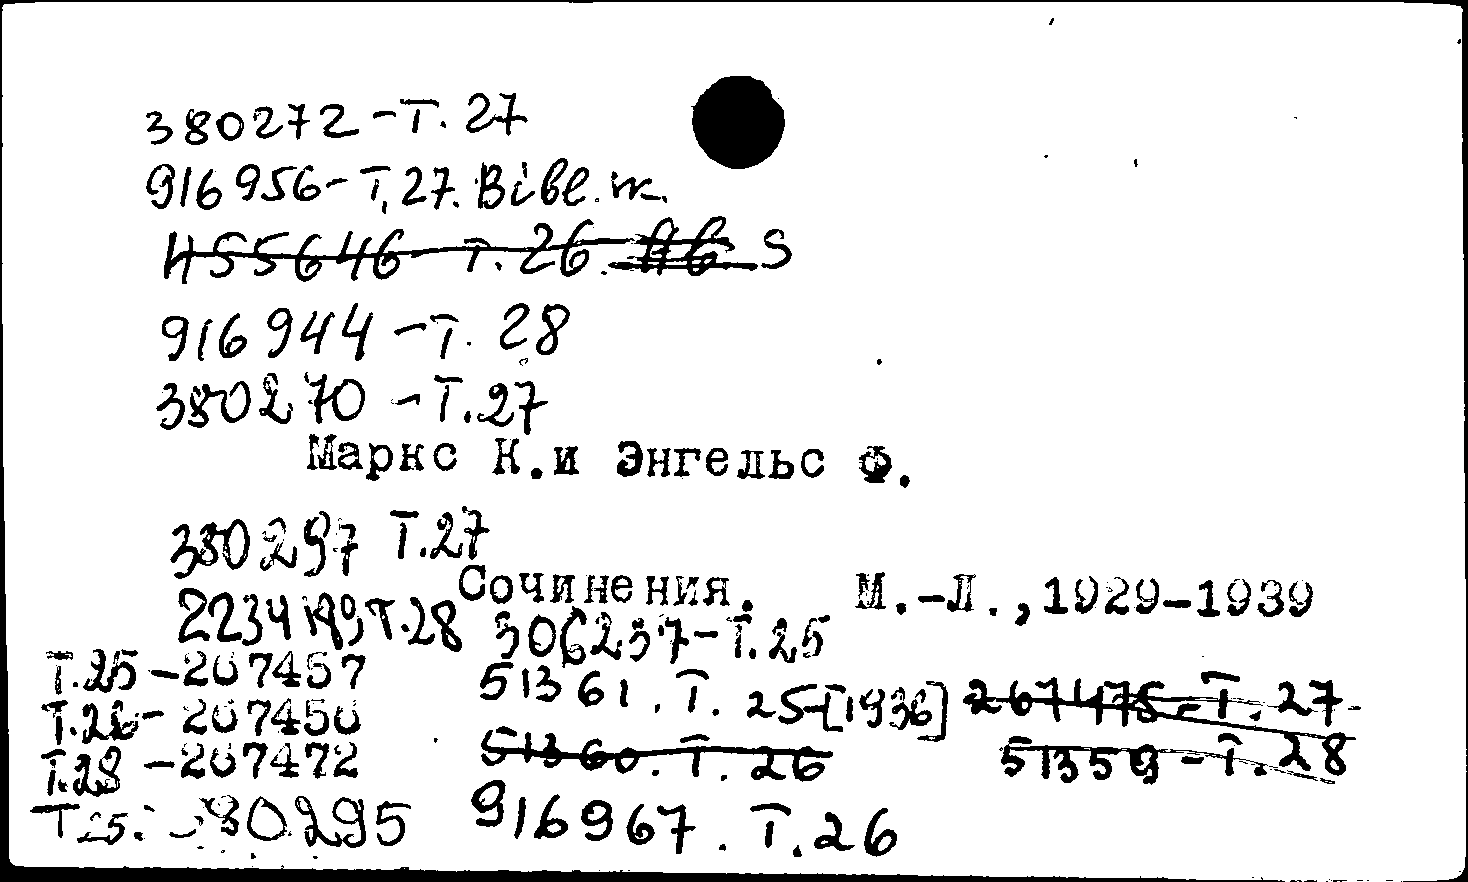 380272-Т. 27
916956-Т. 27. Вівл. ж.
455646-Т. 26. S
916944-Т. 28
380270-Т.27
Маркс К.и Энгельс Ф.
380297 Т.27
Сочинения. М.-Л.,1929-1939
Т.28 306237-Т.25
Т.25-267457 51361. Т. 25-[1936] 267475-Т. 27
Т.26-267450 51360. Т. 26 51359-Т. 28
Т.28-267472
Т25. 380295 916967. Т.26